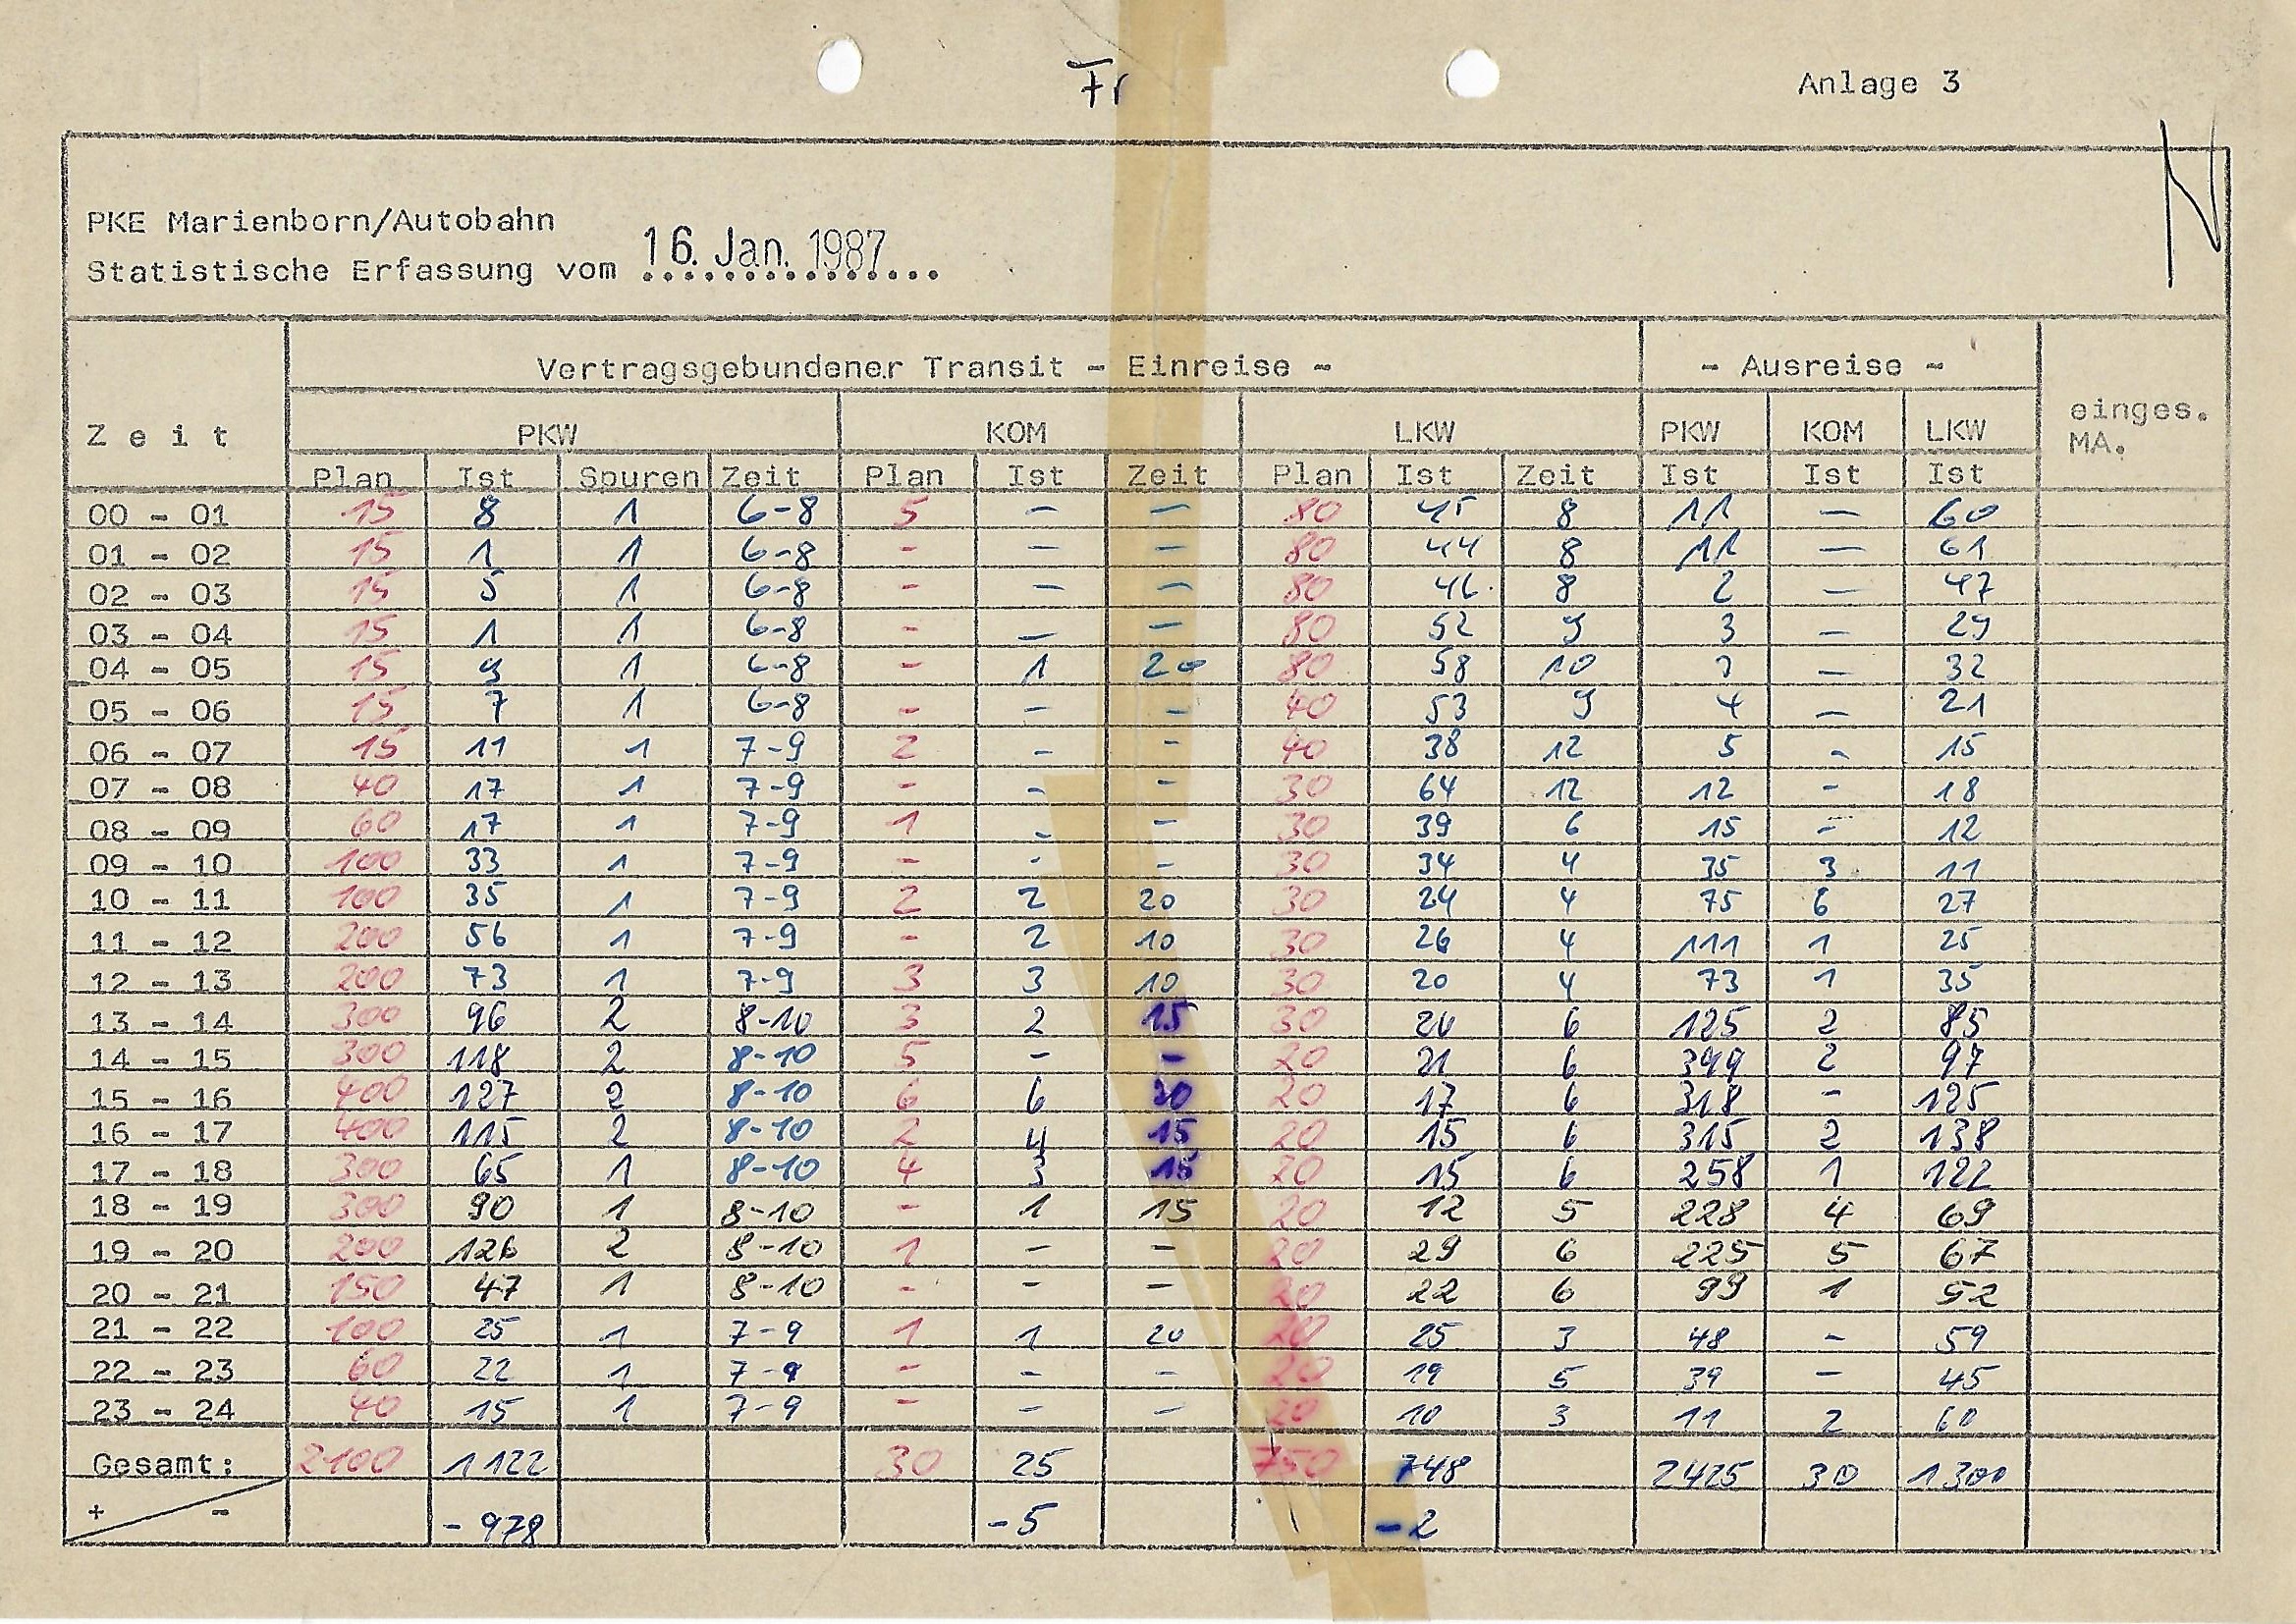 Fr
Anlage 3
PKE Marienborn/Autobahn
Statistische Erfassung vom 16. Jan. 1987
Vertragsgebundener Transit - Einreise - - Ausreise -
einges.
Z e i t PKW KOM LKW PKW KOM LKW MA.
Plan Ist Spuren Zeit Plan Ist Zeit Plan Ist Zeit Ist Ist Ist
00 - 01 15 8 1 6-8 5 - - 80 45 8 11 - 60
01 - 02 15 1 1 6-8 - - - 80 44 8 11 - 61
02 - 03 15 5 1 6-8 - - - 80 46 8 2 - 47
03 - 04 15 1 1 6-8 - - - 80 52 9 3 - 29
04 - 05 15 9 1 6-8 - 1 20 80 58 10 - 32
05 - 06 15 7 1 6-8 - - - 40 53 9 4 - 21
06 - 07 15 11 1 7-9 2 - - 40 38 12 5 - 15
07 - 08 40 17 1 7-9 - - - 30 64 12 12 - 18
08 - 09 60 17 1 7-9 1 - - 30 39 6 15 - 12
09 - 10 100 33 1 7-9 - - - 30 34 4 35 3 11
10 - 11 100 35 1 7-9 2 2 20 30 24 4 75 6 27
11 - 12 200 56 1 7-9 - 2 10 30 26 4 111 1 25
12 - 13 200 73 1 7-9 3 3 10 30 20 4 73 1 35
13 - 14 300 96 2 8-10 3 2 15 30 20 6 125 2 85
14 - 15 300 118 2 8-10 5 - - 20 21 6 399 2 97
15 - 16 400 127 2 8-10 6 6 20 20 17 6 318 - 125
16 - 17 400 115 2 8-10 2 4 15 20 15 6 315 2 138
17 - 18 300 65 1 8-10 4 3 15 20 15 6 258 1 122
18 - 19 300 90 1 8-10 - 1 15 20 12 5 228 4 69
19 - 20 200 126 2 8-10 1 - - 20 29 6 225 5 67
20 - 21 150 47 1 8-10 - - - 20 22 6 99 1 52
21 - 22 100 25 1 7-9 1 1 20 20 25 3 48 - 59
22 - 23 60 22 1 7-9 - - - 20 19 5 39 - 45
23 - 24 40 15 1 7-9 - - - 20 10 3 11 2 60
Gesamt: 2100 1122 30 25 750 748 2425 30 1300
+ - -978 -5 -2